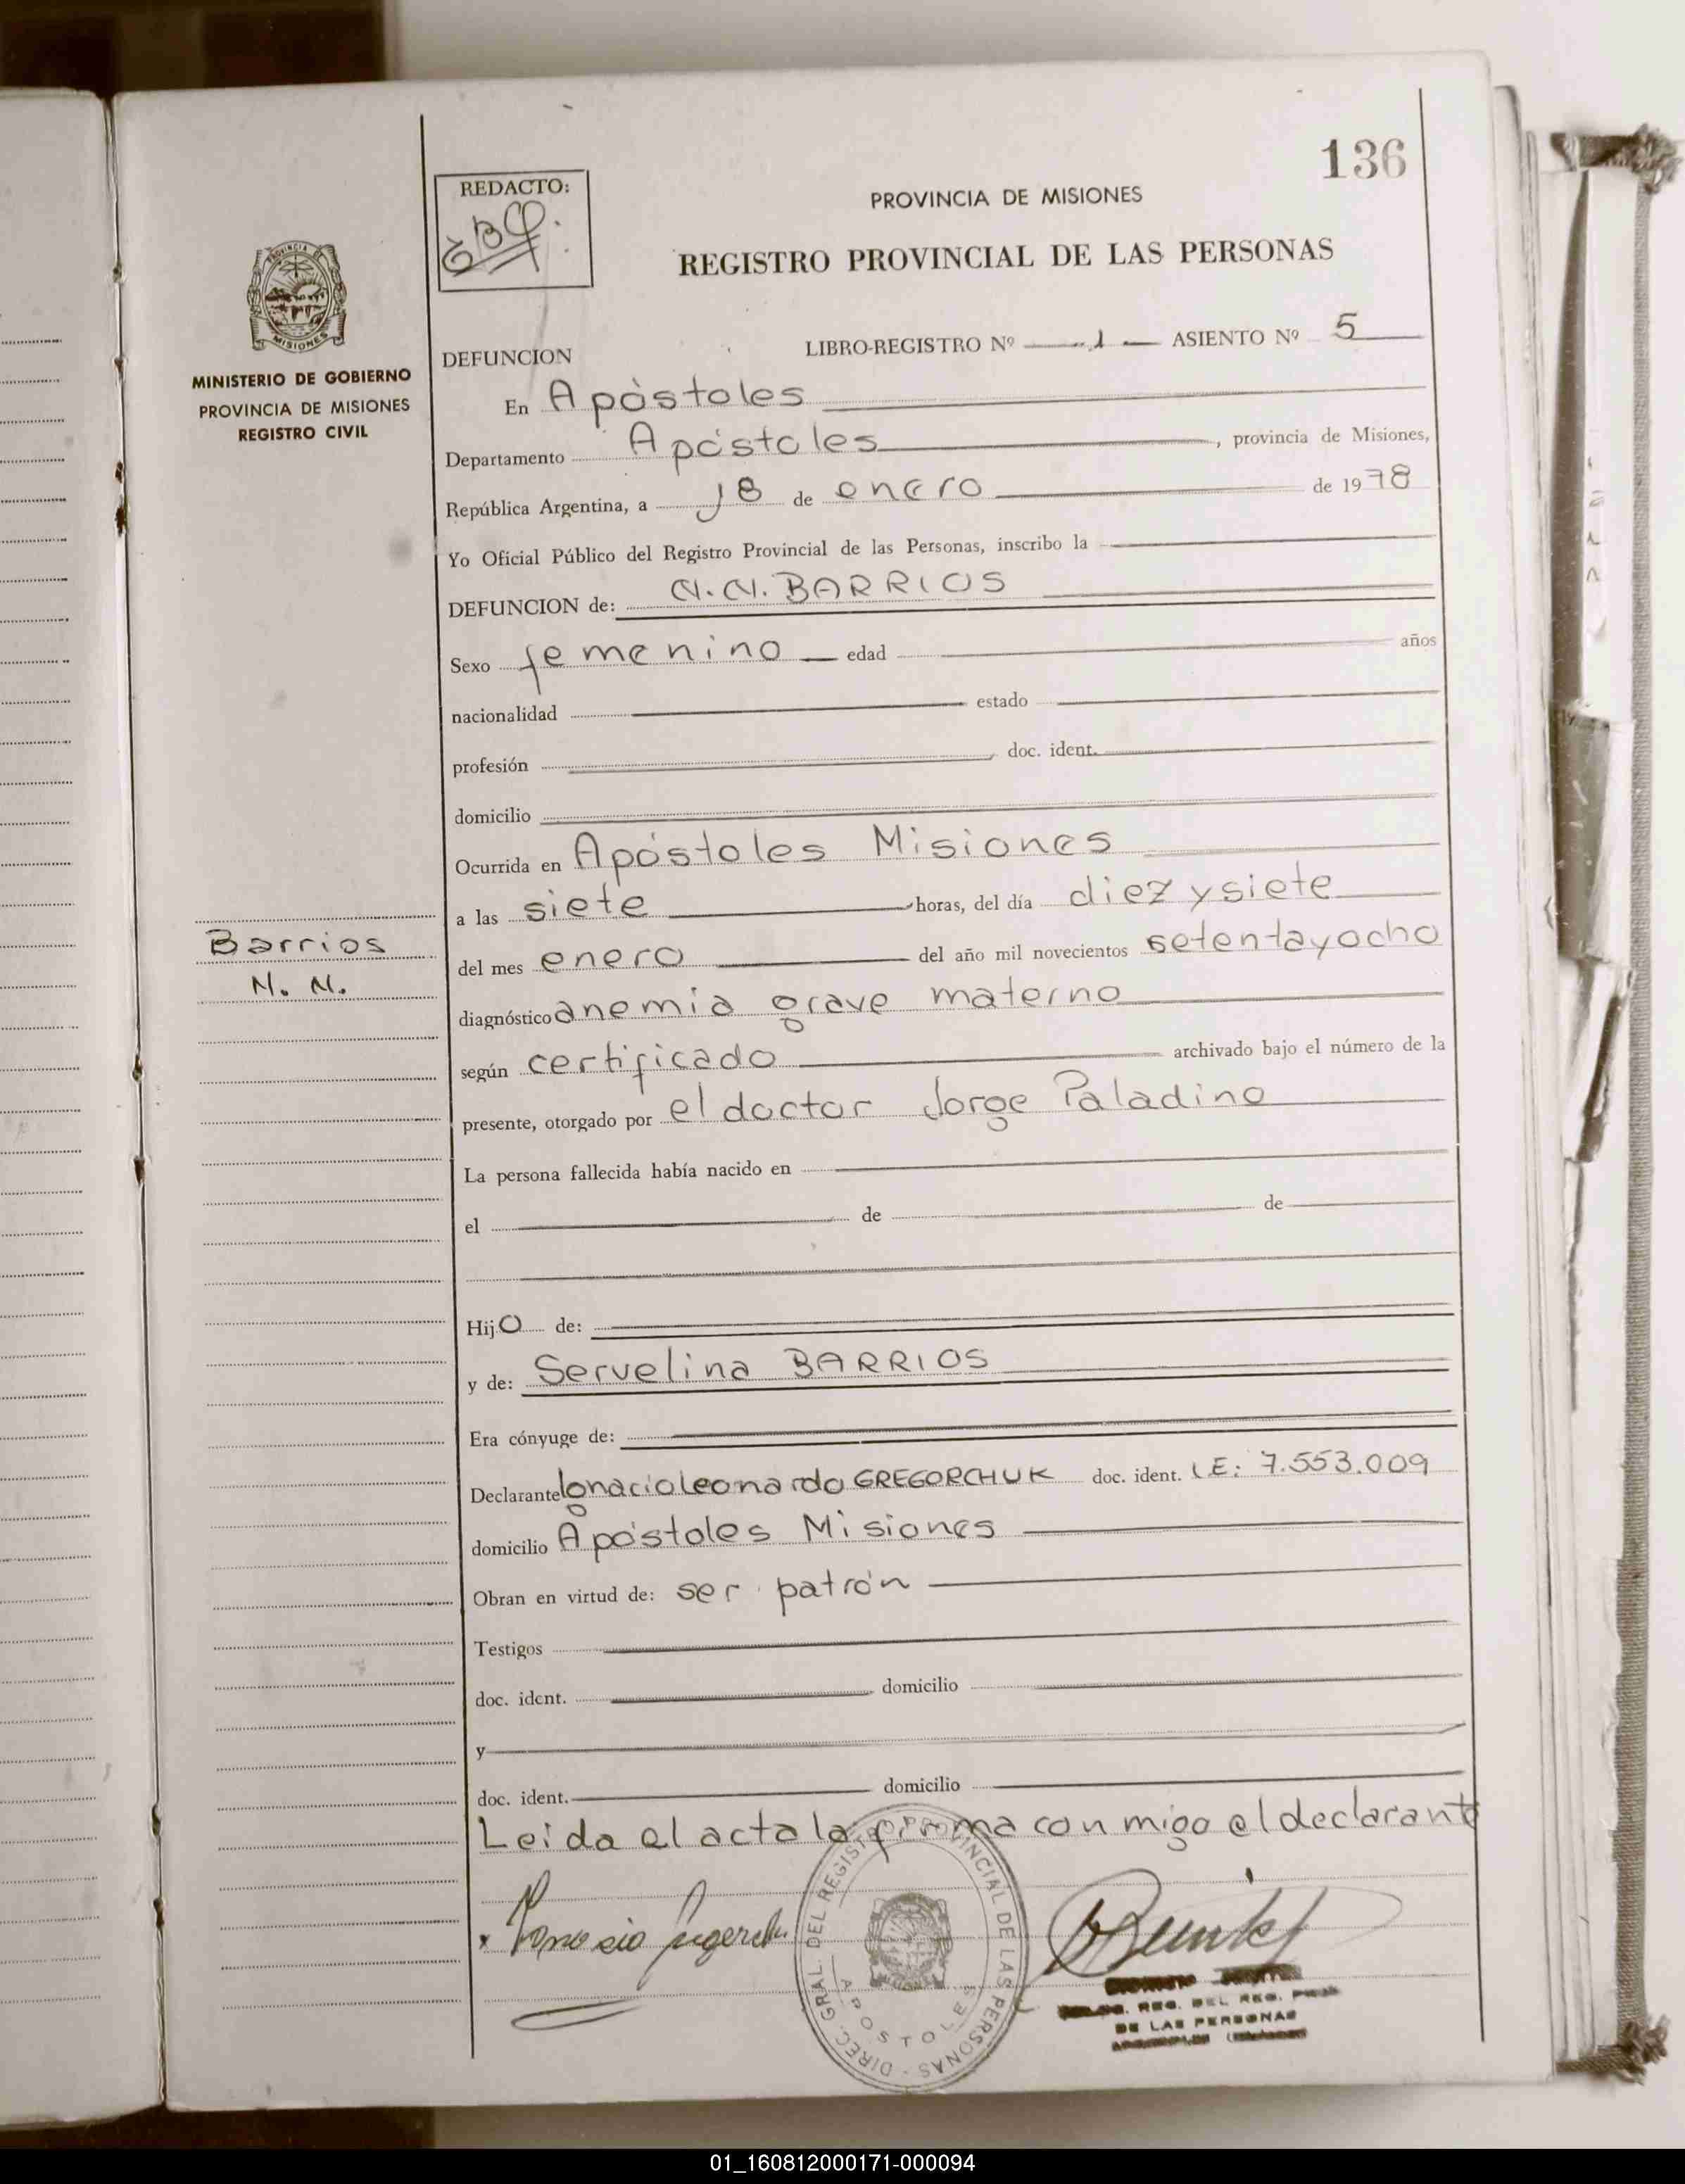 136
REDACTO:
PROVINCIA DE MISIONES
REGISTRO PROVINCIAL DE LAS PERSONAS
PROVINCIA
MISIONES
MINISTERIO DE GOBIERNO
PROVINCIA DE MISIONES
REGISTRO CIVIL
DEFUNCION LIBRO-REGISTRO Nº 1 ASIENTO Nº 5
En Apòstoles
Departamento Apóstoles, provincia de Misiones,
República Argentina, a 18 de enero de 1978
Yo Oficial Público del Registro Provincial de las Personas, inscribo la
DEFUNCION de: N.N. BARRIOS
Sexo femenino edad años
nacionalidad estado
profesión doc. ident.
domicilio
Ocurrida en Apóstoles Misiones
a las siete horas, del día diez y siete
Barrios
N. N.
del mes enero del año mil novecientos setentayocho
diagnóstico anemia grave materno
según certificado archivado bajo el número de la
presente, otorgado por el doctor Jorge Paladino
La persona fallecida había nacido en
el de de
Hijo de:
y de: Servelina BARRIOS
Era cónyuge de:
Declarante Ignacio leonardo GREGORCHUK doc. ident. LE: 7.553.009
domicilio Apóstoles Misiones
Obran en virtud de: ser patrón
Testigos
doc. ident. domicilio
y
doc. ident. domicilio
Leida el acta la firma con migo el declarante
DIREC. GRAL. DEL REGISTRO PROVINCIAL DE LAS PERSONAS
APOSTOLES
REG. DEL REG.
DE LAS PERSONAS
01_160812000171-000094